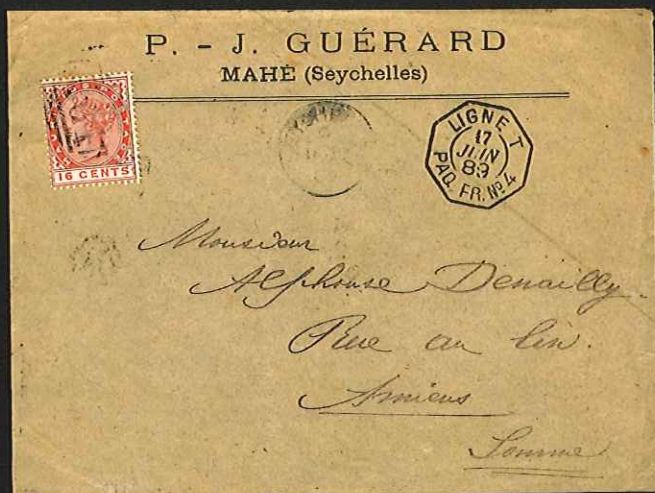 P. - J. GUÉRARD
MAHÉ (Seychelles)
16 CENTS
LIGNE T
17
JUIN
89
PAQ. FR. Nº 4
Monsieur
Alphonse Denailly.
Rue au lin.
Amiens
Somme